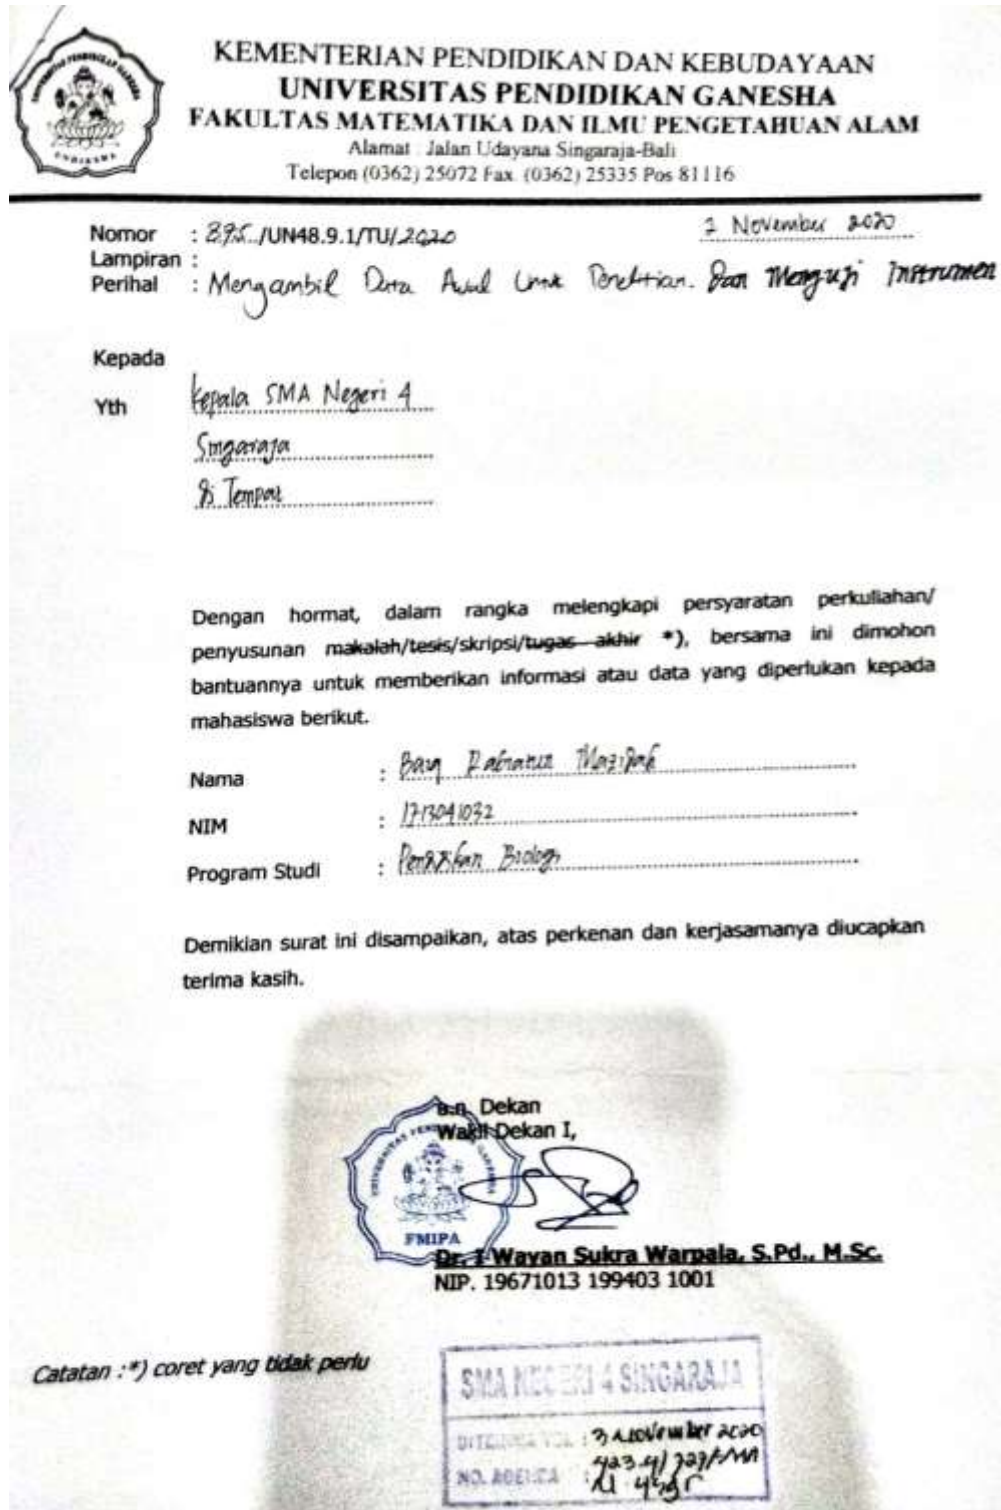 KEMENTERIAN PENDIDIKAN DAN KEBUDAYAAN
UNIVERSITAS PENDIDIKAN GANESHA
FAKULTAS MATEMATIKA DAN ILMU PENGETAHUAN ALAM
Alamat : Jalan Udayana Singaraja-Bali
Telepon (0362) 25072 Fax. (0362) 25335 Pos 81116
UNIVERSITAS PENDIDIKAN GANESHA
UNDIKSHA
Nomor : 895/UN48.9.1/TU/2020
2 November 2020
Lampiran :
Perihal : Mengambil Data Awal Untuk Penelitian Dan Menguji Instrumen
Kepada
Yth Kepala SMA Negeri 4
Singaraja
di Tempat
Dengan hormat, dalam rangka melengkapi persyaratan perkuliahan/
penyusunan makalah/tesis/skripsi/tugas akhir *), bersama ini dimohon
bantuannya untuk memberikan informasi atau data yang diperlukan kepada
mahasiswa berikut.
Nama : Baiq
NIM : 1713041032
Program Studi : Pendidikan Biologi
Demikian surat ini disampaikan, atas perkenan dan kerjasamanya diucapkan
terima kasih.
a.n. Dekan
Wakil Dekan I,
FMIPA
Dr. I Wayan Sukra Warpala, S.Pd., M.Sc.
NIP. 19671013 199403 1001
Catatan :*) coret yang tidak perlu
SMA NEGERI 4 SINGARAJA
DITERIMA TGL : 3 November 2020
NO. AGENDA :